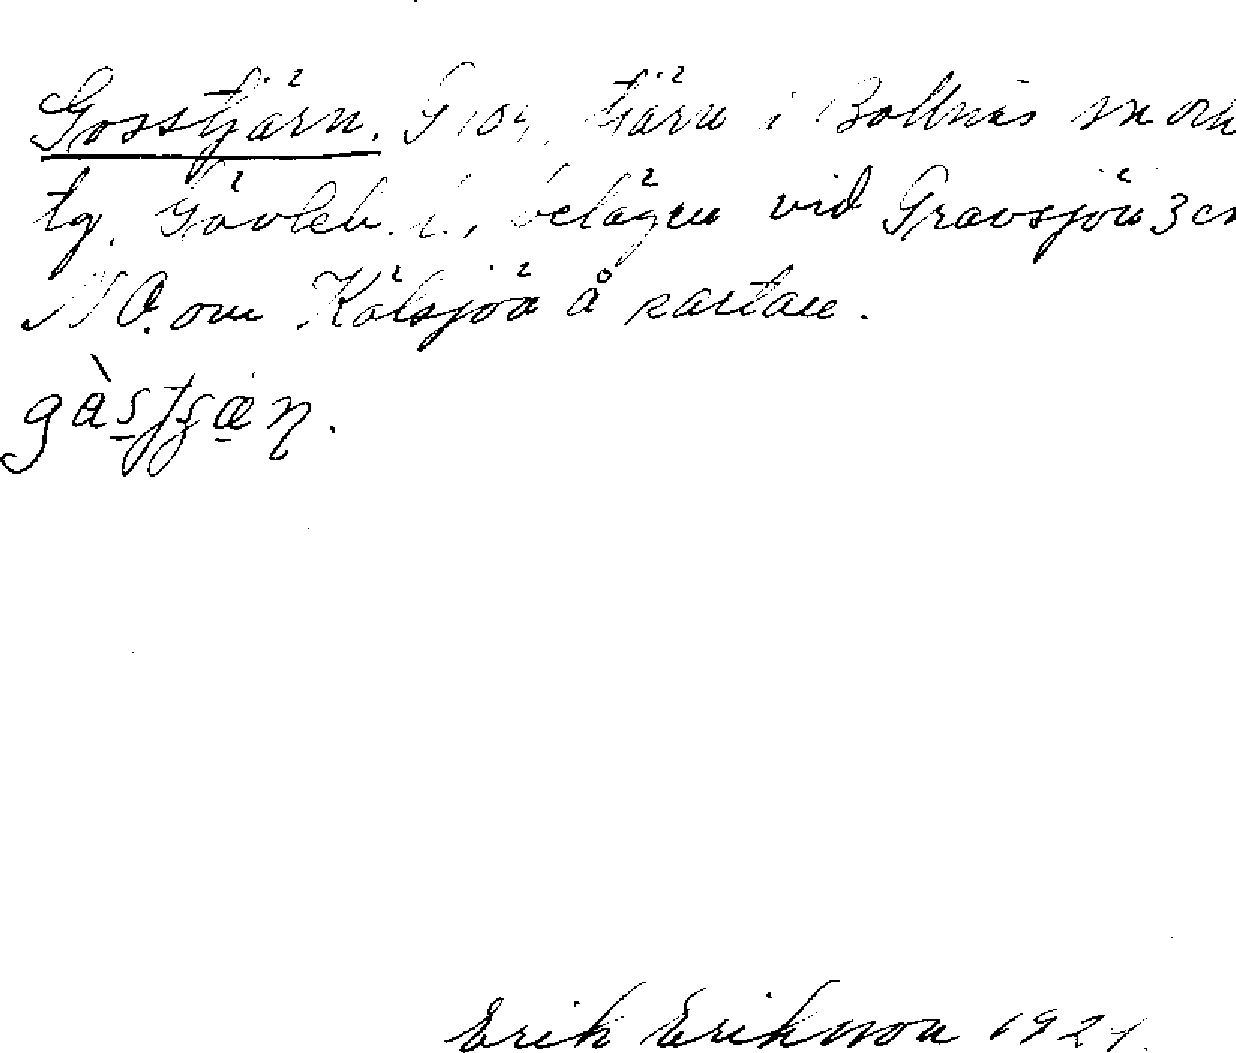 Gosstjärn. G 109, tjärn i Bollnäs sn och
tg. Gävleb. l., belägen vid Gravsjön 3 cm
NO. om Kölsjön å kartan.
Erik Erikson 1921.